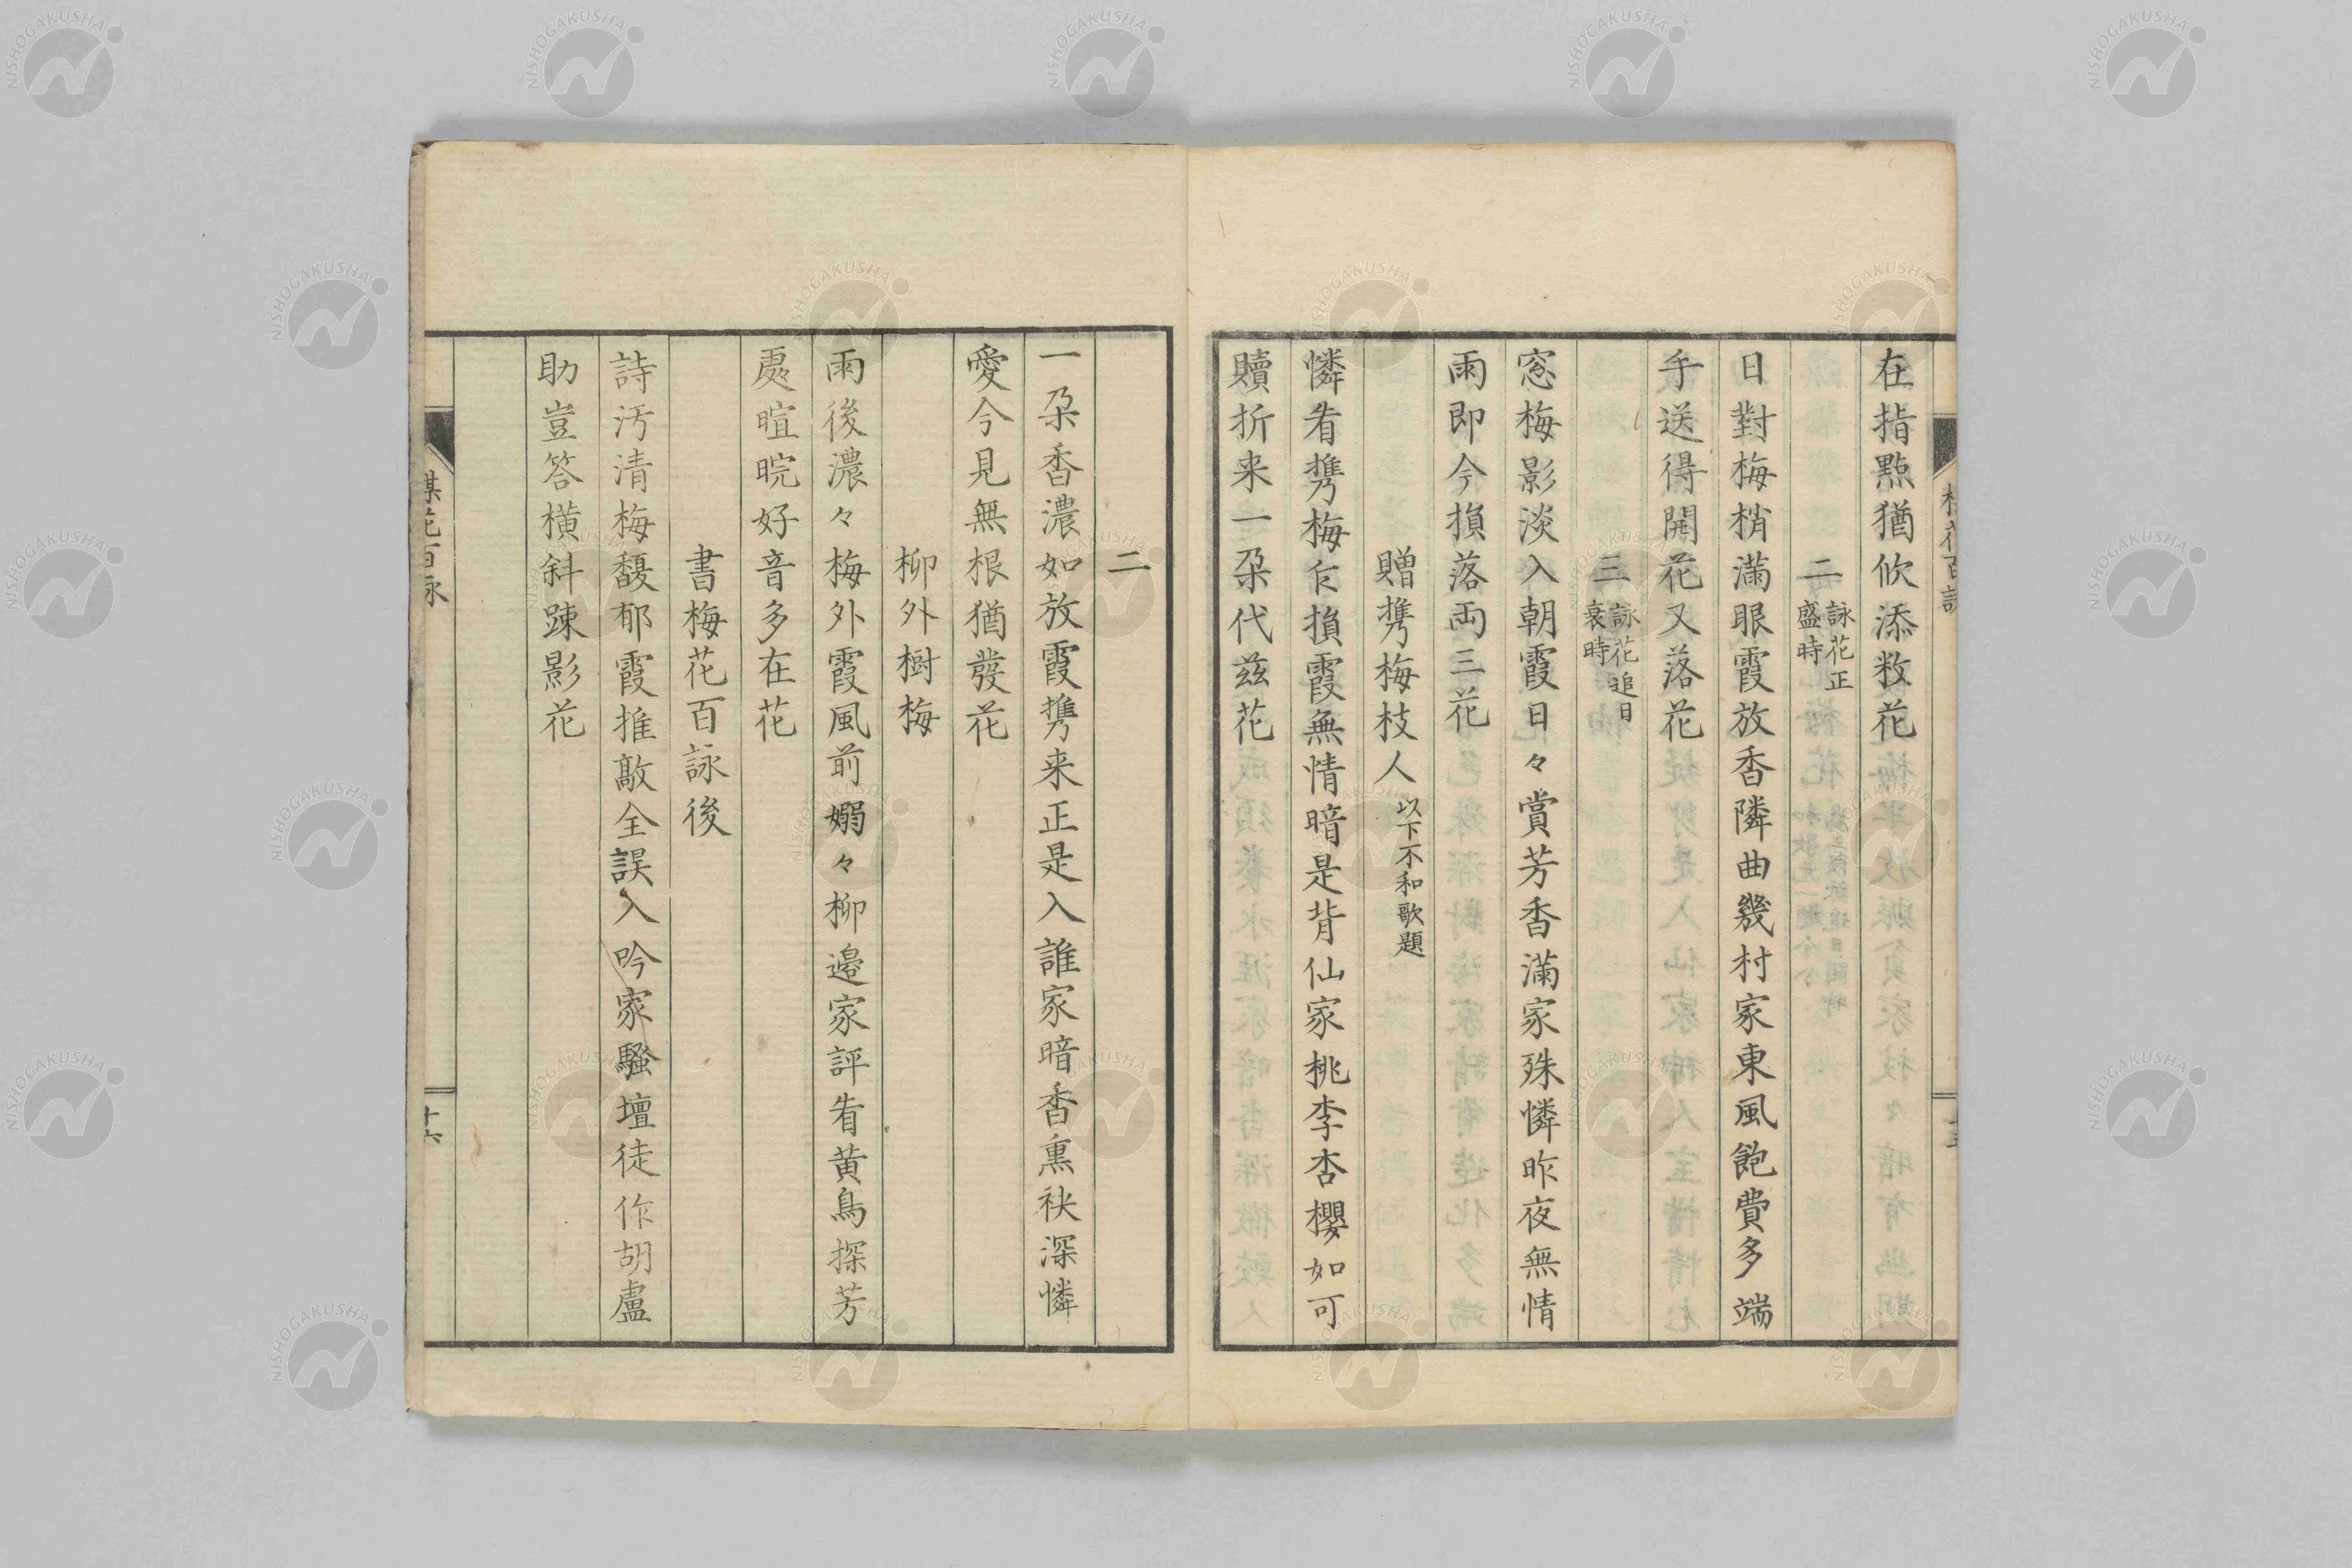 在指點猶攸添敉花
二 詠花正盛時
日對梅梢滿眼霞放香隣曲幾村家東風飽費多端
手送得開花又落花
三 詠花追日衰時
窓梅影淡入朝霞日々賞芳香滿家殊憐昨夜無情
雨即今損落両三花
贈携梅枝人 以下不和歌題
憐看携梅乍損霞無情暗是背仙家桃李杏櫻如可
贖折来一朶代茲花
二
一朶香濃如放霞携来正是入誰家暗香熏袂深憐
愛今見無根猶發花
柳外樹梅
雨後濃々梅外霞風前嫋々柳邉家評看黄鳥探芳
處暄晥好音多在花
書梅花百詠後
詩汚清梅馥郁霞推敲全誤入吟家騷壇徒作胡盧
助豈答橫斜踈影花
花百詠
十六
NISHOGAKUSHA